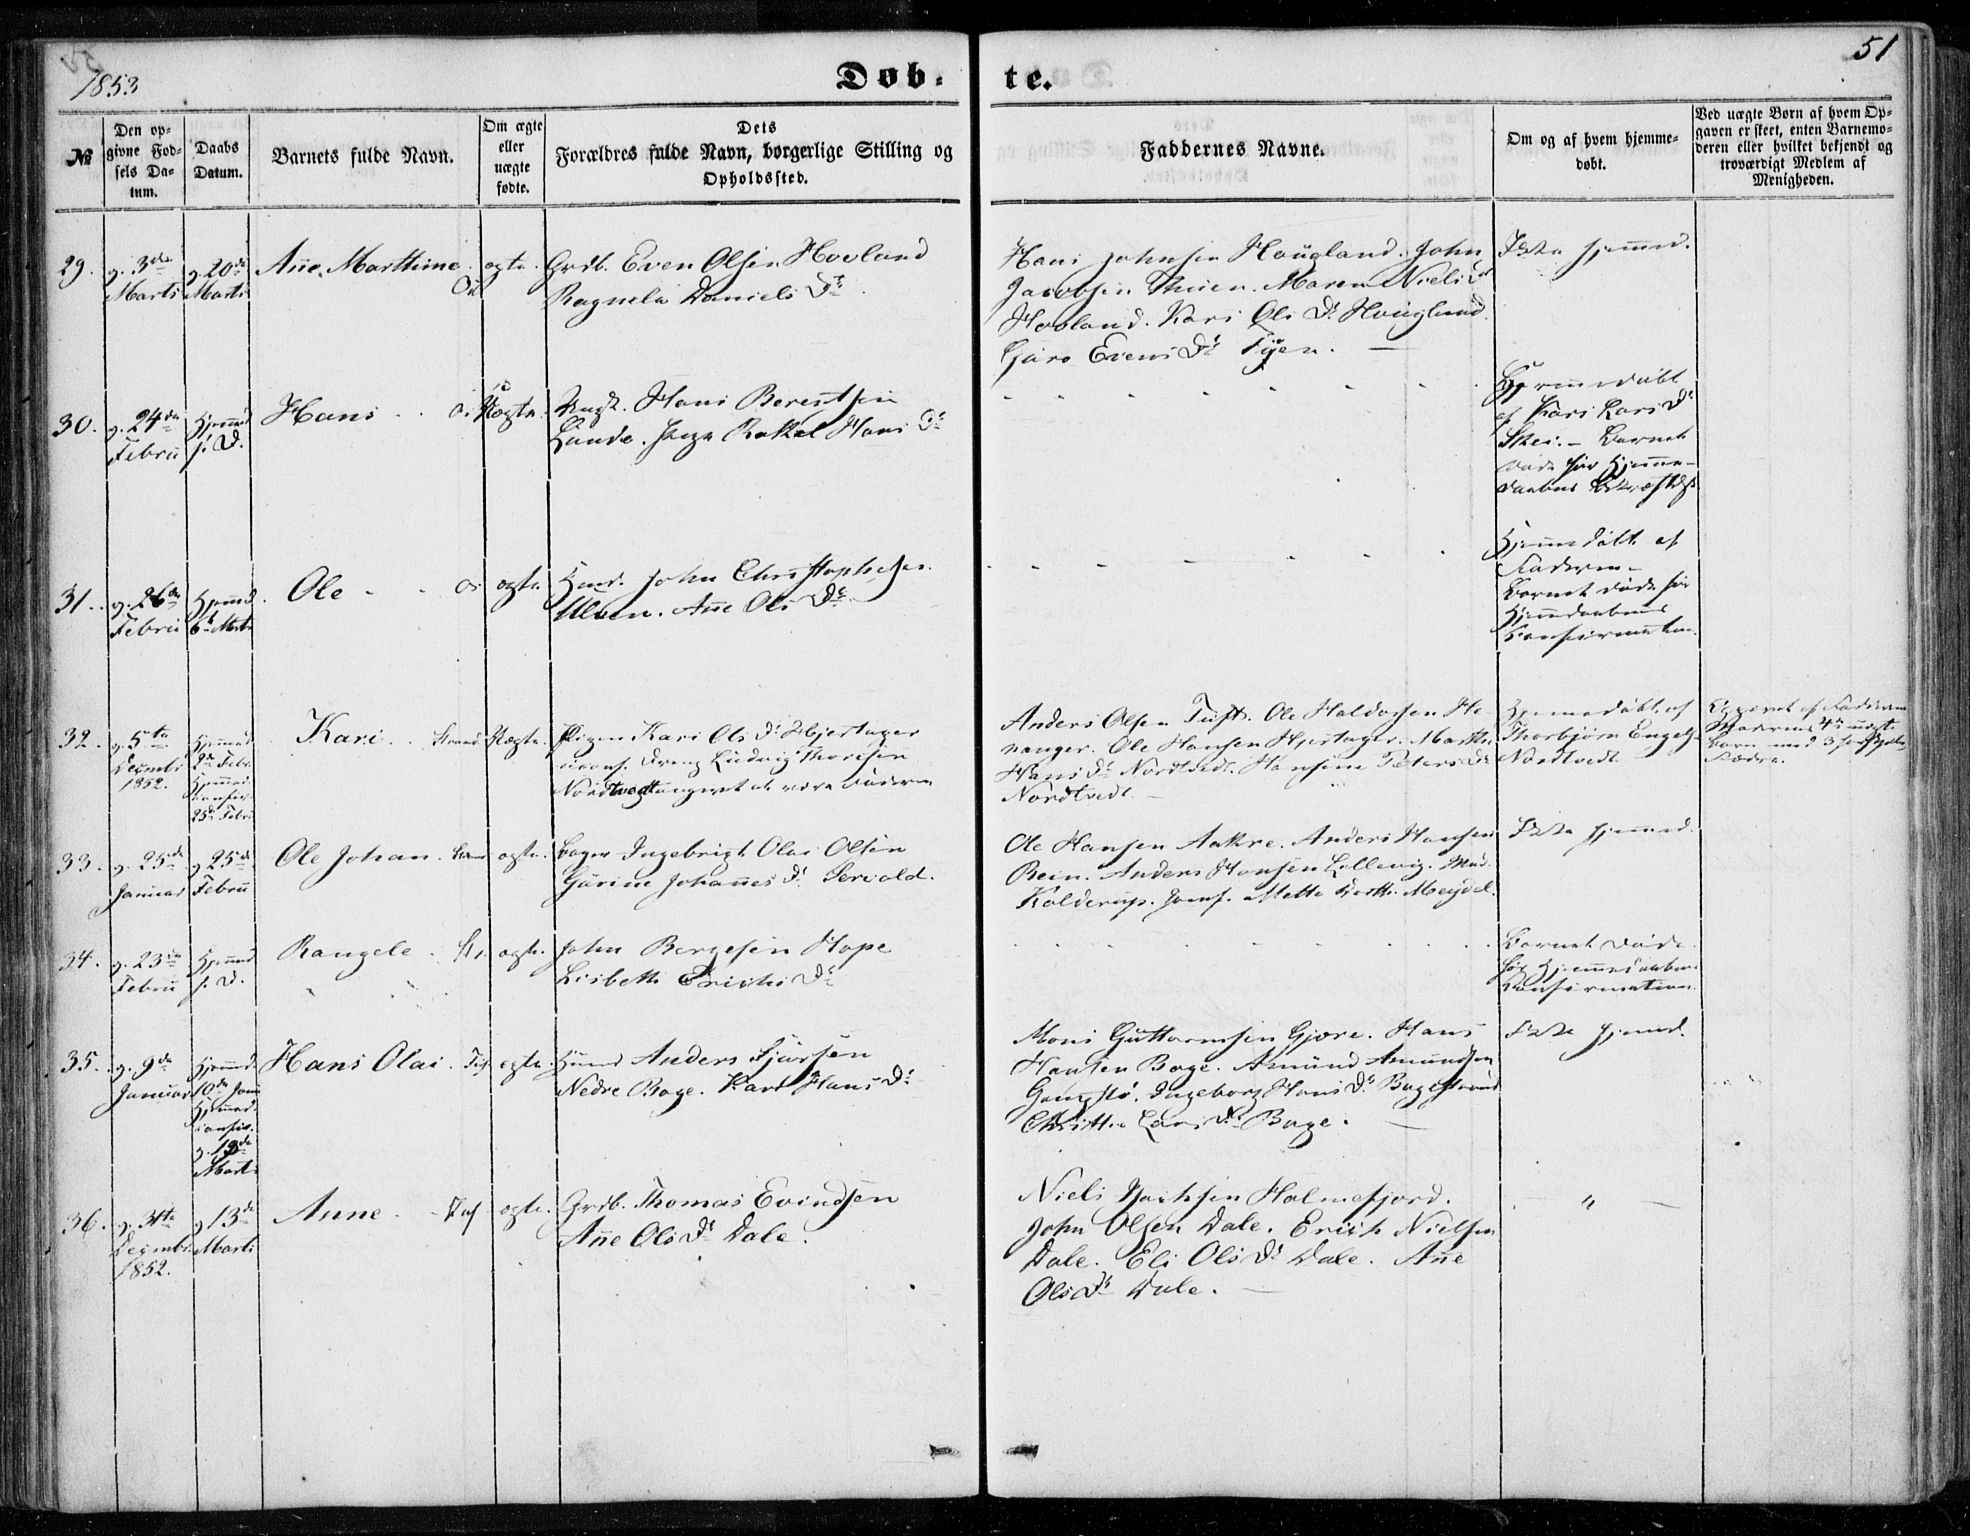 1853
Døb-
te.
51
№
Den op-
givne Fød-
sels Da-
tum.
Daabs
Datum.
Barnets fulde Navn.
Om ægte
eller
uægte
fødte.
Dets
Forældres fulde Navn, borgerlige Stilling og
Opholdssted.
Faddernes Navne.
Om og af hvem hjemme-
døbt.
Ved uægte Børn af hvem Op-
gaven er skeet, enten Barnemo-
deren eller hvilket bekjendt og
troværdigt Medlem af
Menigheden.
29.
g. 3de
Marts
g. 20de
Marts
Ane Marthine
Os
ægte.
Grdb. Even Olsen Hovland
Ragnela Daniels Dr
Hans Johnsen Hougland. John
Jacobsen Thuen. Maren Niels Dr
Hovland. Kari Ols Dr Hougland
Guro Evens Dr Tyen.
Ikke hjemmed.
30.
g. 24de
Febru
Hjemmed
s. D.
Hans
Os
Uægte.
Ungk. Hans Berentsen
Lunde. Pige Rakel Hans Dr
Hjemmedøbt
af Kari Lars Dr
Skei. - Barnet
døde før Hjemme-
daabens
31.
g. 26de
Febru
Hjemmed
6te Marts
Ole
Os
ægte.
Huusm. John Christophersen
Ulven. Ane Ols Dr
Hjemmedøbt af
Faderen -
Barnet døde før
Hjemmedaabens
Confirmation.
32.
g. 5te
Decembr
1852.
Hjemmed
9de Febr.
Hjemmed.
confir.
25de Febr.
Kari
Strand
Uægte.
Pigen Kari Ols Dr Hjertager
Dreng Ludvig Thorsen
Nordtvedt angivet at være Faderen
Anders Olsen Tuft. Ole Haldorsen He-
nanger. Ole Hansen Hjertager. Marthe
Hans Dr Nordtvedt. Hansine Peters Dr
Nordtvedt.
Hjemmedøbt af
Thorbjørn Engels
Nordtvedt
Opgivet af Faderen
Moderens 4de uægte
Barn med 3 forskjellige
Fædre.
33.
g. 25de
Januar
g. 25de
Febru
Ole Johan.
Strand
ægte.
Bager Ingebrigt Olai Olsen
Gurine Johannes Dr Servold.
Ole Hansen Aakre. Anders Hansen
Rein. Anders Hansen Lillevig. Mad.
Kolderup. Jomf. Mette Dorth. Meydel.
Ikke hjemmed.
34.
g. 23de
Febru
Hjemmed
s. D.
Rangele
St.
ægte.
John Børgesen Hope
Lisbeth Erichs Dr
Barnet døde
før Hjemmedaabens
Confirmation.
35.
g. 9de
Januar
Hjemmed
10de Janu
Hjemmed.
confir.
g. 13de
Marts
Hans Olai
Fus
ægte.
Huusm Anders Sjursen
Nedre Boge. Kari Hans Dr
Mons Guttormsen Gjære. Hans
Hansen Boge. Amund Amundsen
Gangstø. Ingeborg Hans Dr Bogestrand
Christie Lars Dr Boge.
Ikke hjemmed.
36.
g. 31te
Decembr
1852.
g 13de
Marts
Anne
Fus
ægte.
Grdb. Thomas Evindsen
Ane Ols Dr Dale.
Niels Holmefjord.
John Olsen Dale. Erich Nielsen
Dale. Eli Ols Dr Dale. Ane
Ols Dr Dale.
"